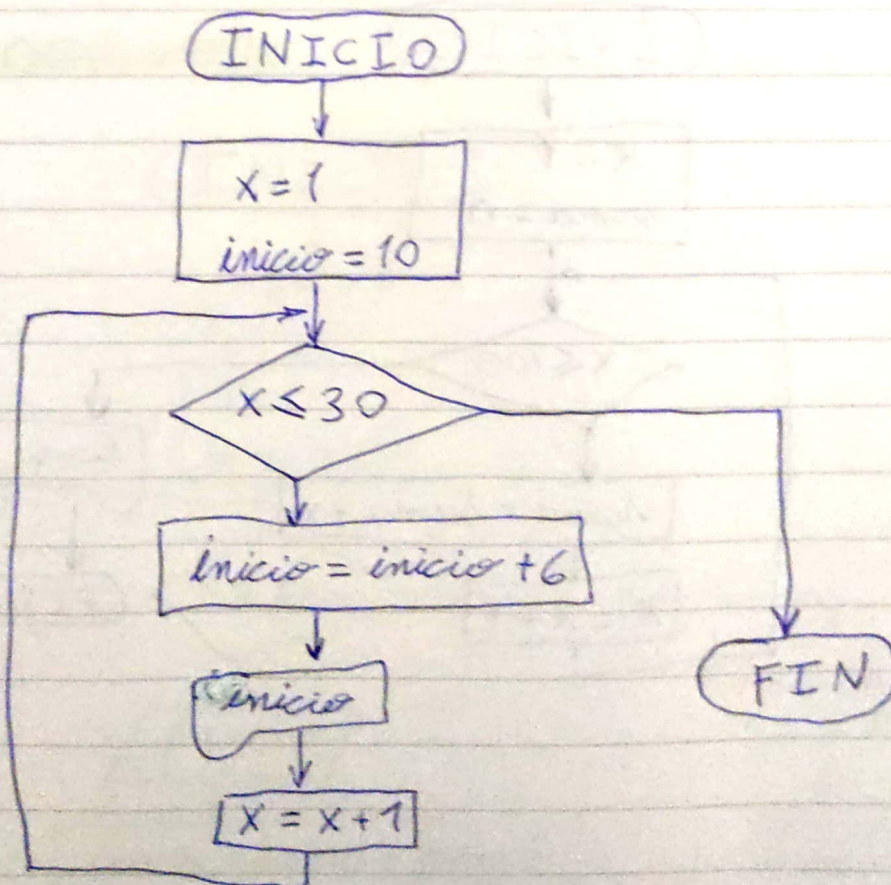 INICIO
x = 1
inicio = 10
x ≤ 30
inicio = inicio + 6
inicio
x = x + 1
FIN